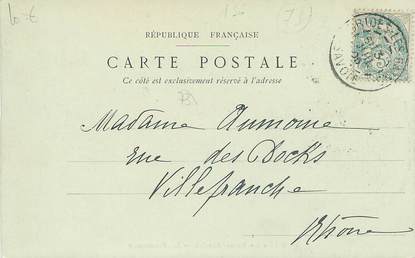 10 €
RÉPUBLIQUE FRANÇAISE
CARTE POSTALE
Ce côté est exclusivement réservé à l'adresse
BRIDES-LES-BAINS
SAVOIE
Madame Aumoine
rue des Docks
Villefranche
Rhône